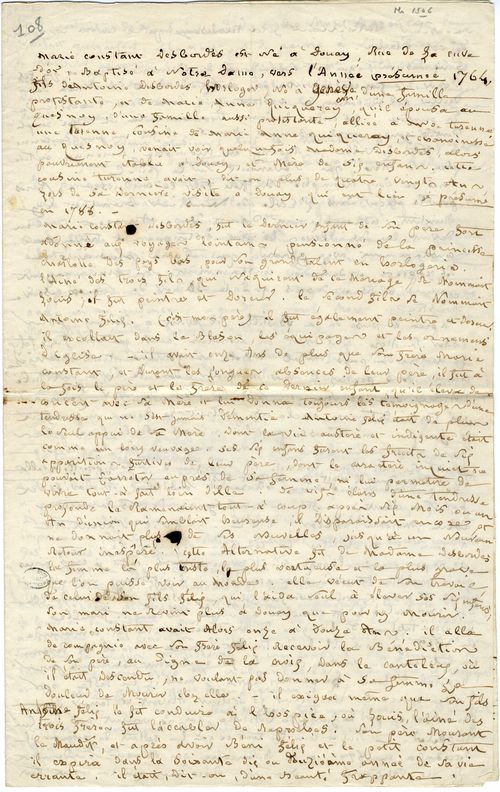 108
Ms 1506
Marie constant Desbordes est né à Douay, Rue de la cuve
d'or - Baptisé à Notre Dame, vers l'Année présumée 1764,
fils d'Antoine Desbordes, horloger né à Genève d'une famille
protestante, et de Marie Anne Quiquerey, qu'il épousa au
quesnoy, d'une famille aussi protestante, alliée à
une turenne, cousine de Marie Anne quiquerey et chanoinesse
au quesnoy, venait voir quelquefois madame Desbordes, alors
pauvrement établie à Douay, et Mère de Sept enfans. Cette
cousine turenne avait alors plus de quatre vingts Ans
lors de sa dernière visite à Douay, qui eut lieu, je présume
en 1788. -
Marie constant Desbordes, fut le dernier enfant de son père, Fort
adonné aux voyages lointains, pensionné de la princesse
charlotte des pays bas pour son grand talent en horlogerie.
l'Aîné des trois fils qui naquirent de ce Mariage, se nommait
Jouis, il fut peintre et Doreur. le Second fils se Nommait
Antoine Félix. (C'est mon père) il fut également peintre et Doreur
il excellait dans le Blason, les équipages et les ornemens
d'église. - il avait onze Ans de plus que son frère Marie
constant, et durant les longues absences de leur père, il fut à
la fois le père et le frère de ce dernier enfant qu'il éleva de
concert avec sa Mère et lui donna toujours les témoignages d'une
tendresse qui ne s'est jamais démentie. Antoine Félix était de plus
le seul appui de sa Mère dont la vie austère et indigente était
comme un long veuvage. Ses Sept enfans furent les fruits de Sept
apparitions furtives de leur père, dont le caractère inquiet ne
pouvait s'arrêter auprès de sa femme, ni lui permettre de
l'être tout-à-fait loin d'elle. De vifs élans d'une tendresse
profonde la Ramenaient tout à coup, après Six Mois ou un
An d'union qui semblait heureuse, il disparaissait encore et
ne donnait plus de ses Nouvelles jusqu'à un Nouveau
Retour inespéré. Cette Alternative fit de Madame Desbordes
la femme la plus triste, la plus vertueuse et la plus grave
que l'on puisse voir au Monde. elle vécut de son travail
et celui de son fils Félix, qui l'aida seul à élever ses Sept enfans,
Son mari ne Revint plus à Douay que pour y Mourir.
Marie constant avait Alors onze à Douze Ans. il alla
de compagnie avec son frère Félix Recevoir la Bénédiction
de son père, au Signe de la croix, dans le canteleu, où
il était descendu, ne voulant pas donner à sa femme la
douleur de Mourir chez elle - il exigea même que son fils
Antoine Félix le fit conduire à l'hospice, où Jouis, l'aîné des
trois frères fut l'accabler de Reproches. Son père Mourant
le Maudit, et après avoir Béni Félix et le petit constant
il expira dans la Soixante dix ou Douzième année de sa vie
errante - il était, dit-on, d'une Beauté frappante.